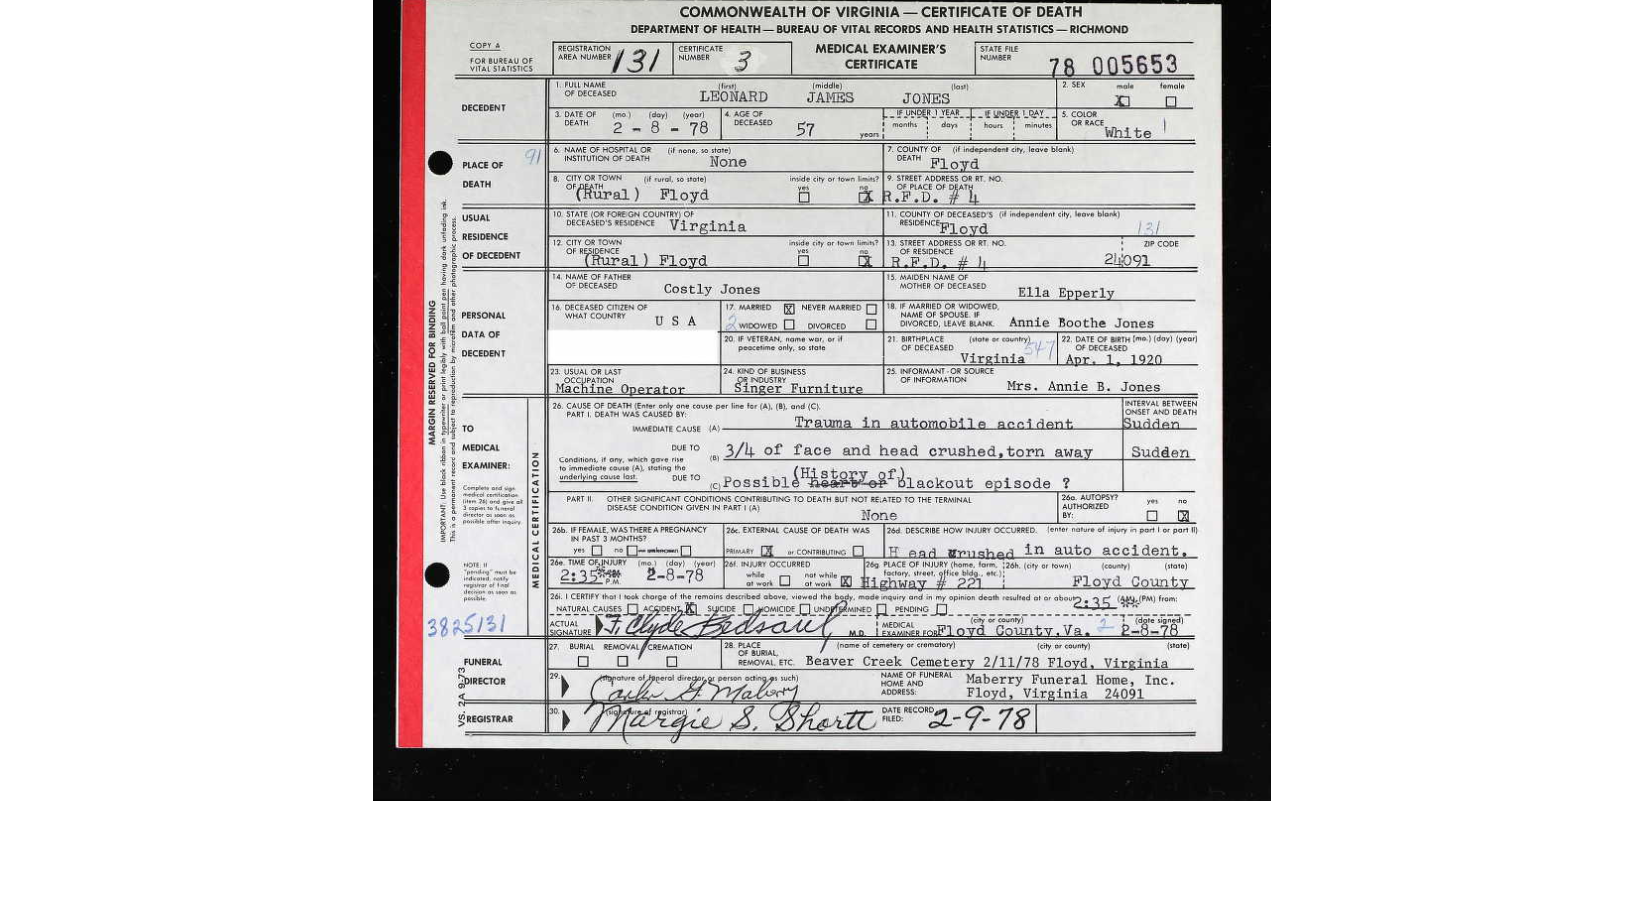 COMMONWEALTH OF VIRGINIA — CERTIFICATE OF DEATH
DEPARTMENT OF HEALTH — BUREAU OF VITAL RECORDS AND HEALTH STATISTICS — RICHMOND
COPY A
FOR BUREAU OF VITAL STATISTICS
REGISTRATION AREA NUMBER 131
CERTIFICATE NUMBER 3
MEDICAL EXAMINER'S CERTIFICATE
STATE FILE NUMBER 78 005653
DECEDENT
1. FULL NAME OF DECEASED (first) LEONARD (middle) JAMES (last) JONES
2. SEX male X female
3. DATE OF DEATH (mo.) (day) (year) 2 - 8 - 78
4. AGE OF DECEASED 57 years
IF UNDER 1 YEAR months days
IF UNDER 1 DAY hours minutes
5. COLOR OR RACE White 1
PLACE OF DEATH
91
6. NAME OF HOSPITAL OR INSTITUTION OF DEATH (if none, so state) None
7. COUNTY OF DEATH (if independent city, leave blank) Floyd
8. CITY OR TOWN OF DEATH (if rural, so state) (Rural) Floyd
inside city or town limits? yes no X
9. STREET ADDRESS OR RT. NO. OF PLACE OF DEATH R.F.D. # 4
USUAL RESIDENCE OF DECEDENT
10. STATE (OR FOREIGN COUNTRY) OF DECEASED'S RESIDENCE Virginia
11. COUNTY OF DECEASED'S RESIDENCE (if independent city, leave blank) Floyd 131
12. CITY OR TOWN OF RESIDENCE (Rural) Floyd
inside city or town limits? yes no X
13. STREET ADDRESS OR RT. NO. OF RESIDENCE R.F.D. # 4
ZIP CODE 24091
PERSONAL DATA OF DECEDENT
14. NAME OF FATHER OF DECEASED Costly Jones
15. MAIDEN NAME OF MOTHER OF DECEASED Ella Epperly
16. DECEASED CITIZEN OF WHAT COUNTRY U S A
17. MARRIED X NEVER MARRIED
2 WIDOWED DIVORCED
18. IF MARRIED OR WIDOWED, NAME OF SPOUSE. IF DIVORCED, LEAVE BLANK. Annie Boothe Jones
20. IF VETERAN, name war, or if peacetime only, so state
21. BIRTHPLACE OF DECEASED (state or country) Virginia 547
22. DATE OF BIRTH OF DECEASED (mo.) (day) (year) Apr. 1, 1920
23. USUAL OR LAST OCCUPATION Machine Operator
24. KIND OF BUSINESS OR INDUSTRY Singer Furniture
25. INFORMANT - OR SOURCE OF INFORMATION Mrs. Annie B. Jones
TO MEDICAL EXAMINER:
Complete and sign medical certification (item 26) and give all 3 copies to funeral director as soon as possible after inquiry.
NOTE: If "pending" must be indicated, notify registrar of final decision as soon as possible.
MEDICAL CERTIFICATION
26. CAUSE OF DEATH (Enter only one cause per line for (A), (B), and (C).
PART I. DEATH WAS CAUSED BY:
INTERVAL BETWEEN ONSET AND DEATH
IMMEDIATE CAUSE (A) Trauma in automobile accident Sudden
DUE TO (B) 3/4 of face and head crushed,torn away Sudden
Conditions, if any, which gave rise to immediate cause (A), stating the underlying cause last.
(History of)
DUE TO (C) Possible heart or blackout episode ?
PART II. OTHER SIGNIFICANT CONDITIONS CONTRIBUTING TO DEATH BUT NOT RELATED TO THE TERMINAL DISEASE CONDITION GIVEN IN PART I (A)
None
26a. AUTOPSY? AUTHORIZED BY: yes no X
26b. IF FEMALE, WAS THERE A PREGNANCY IN PAST 3 MONTHS? yes no unknown
26c. EXTERNAL CAUSE OF DEATH WAS PRIMARY X or CONTRIBUTING
26d. DESCRIBE HOW INJURY OCCURRED. (enter nature of injury in part I or part II)
H ead crushed in auto accident.
26e. TIME OF INJURY (mo.) (day) (year) 2:35 P.M. 2-8-78
26f. INJURY OCCURRED while at work not while at work X
26g. PLACE OF INJURY (home, farm, factory, street, office bldg., etc.) Highway # 221
26h. (city or town) (county) (state) Floyd County
26i. I CERTIFY that I took charge of the remains described above, viewed the body, made inquiry and in my opinion death resulted at or about 2:35 (AM) (PM) from:
NATURAL CAUSES ACCIDENT X SUICIDE HOMICIDE UNDETERMINED PENDING
3825131
ACTUAL SIGNATURE F. Clyde Bedsaul M.D.
MEDICAL EXAMINER FOR: (city or county) Floyd County,Va. 2 (date signed) 2-8-78
FUNERAL DIRECTOR
27. BURIAL REMOVAL CREMATION
28. PLACE OF BURIAL, REMOVAL, ETC. (name of cemetery or crematory) (city or county) (state)
Beaver Creek Cemetery 2/11/78 Floyd, Virginia
29. (signature of funeral director or person acting as such)
NAME OF FUNERAL HOME AND ADDRESS: Maberry Funeral Home, Inc.
Floyd, Virginia 24091
REGISTRAR
30. (signature of registrar) Margie S. Shortt
DATE RECORD FILED: 2-9-78
VS. 2A 9-73
MARGIN RESERVED FOR BINDING
IMPORTANT: Use black ribbon in typewriter or print legibly with ball point pen having dark unfading ink.
This is a permanent record and subject to reproduction by microfilm and other photographic process.